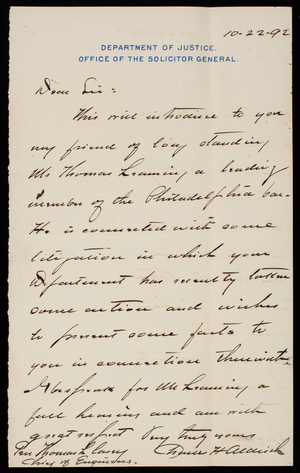 10-22-92
DEPARTMENT OF JUSTICE.
OFFICE OF THE SOLICITOR GENERAL.
Dear Sir:
This will introduce to you
my friend of long standing
Mr Thomas Leaming a leading
member of the Philadelphia bar.
He is connected with some
litigation in which your
Department has recently taken
some action and wishes
to present some facts to
you in connection therewith.
I bespeak for Mr Leaming a
full hearing and am with
great respect Very truly yours
Gen Thomas L Casey
Chief of Engineers.
H Aldrich